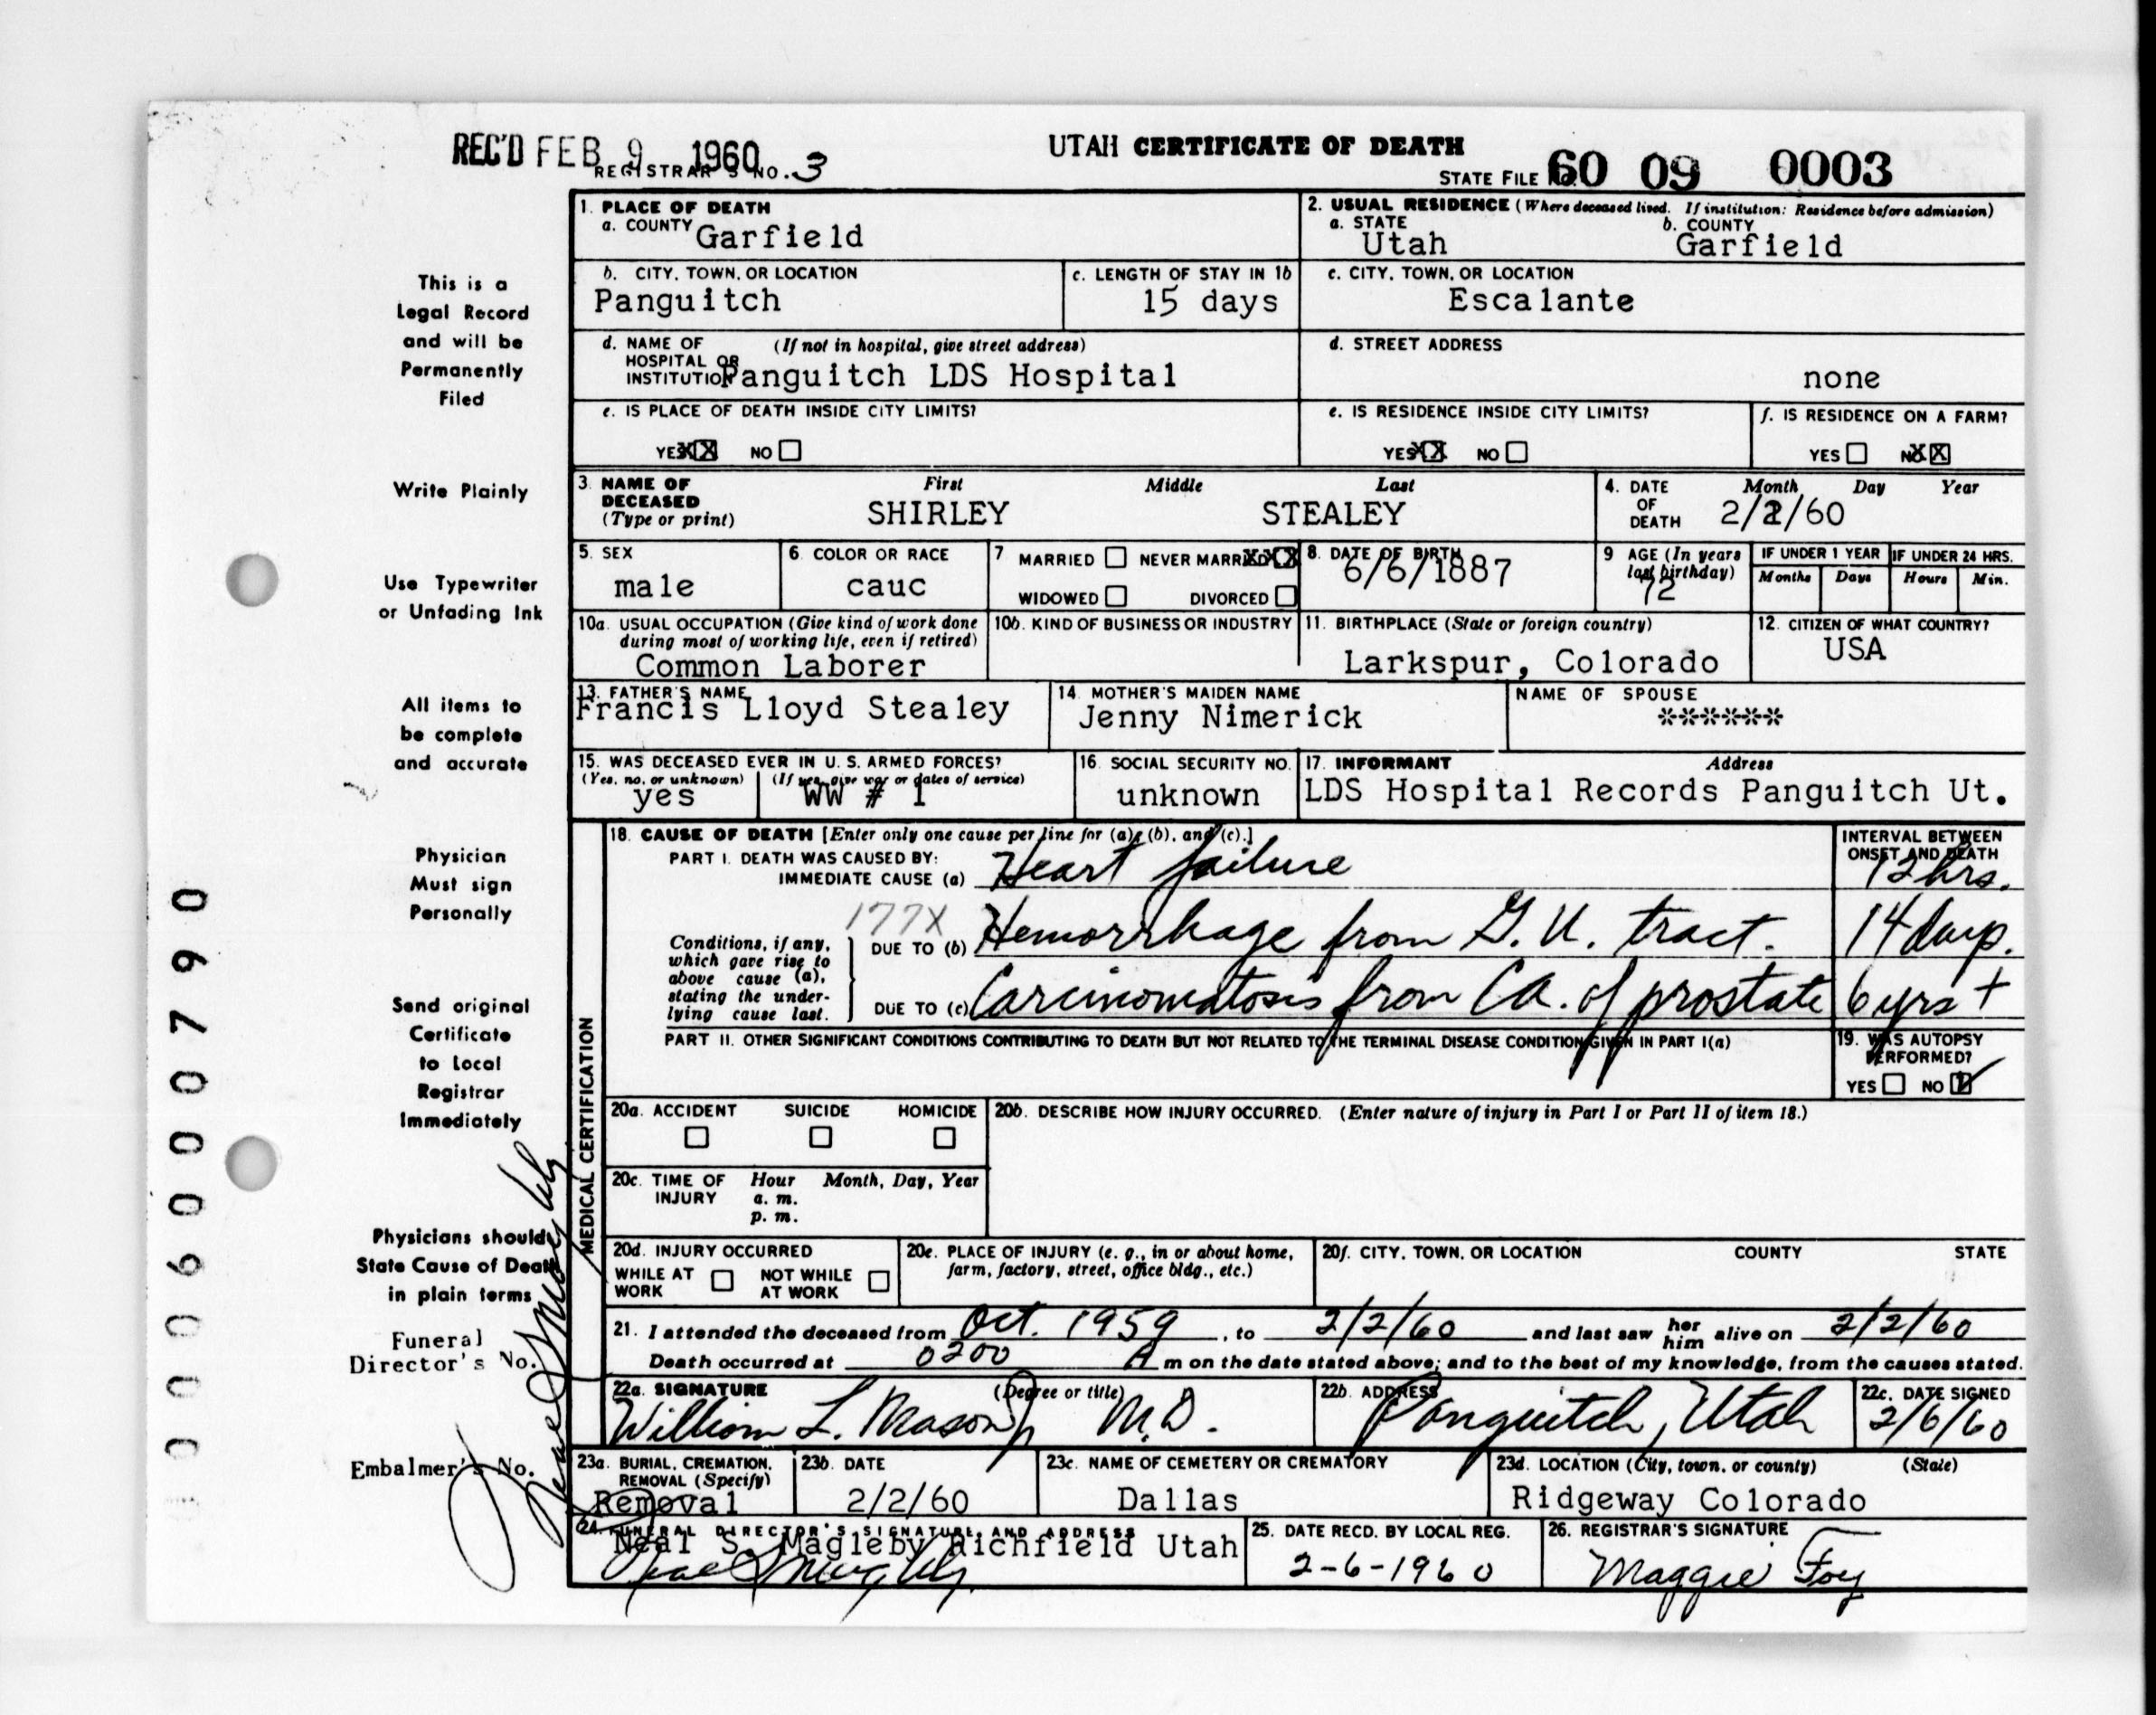 REC'D FEB 9 1960
REGISTRAR'S NO. 3
UTAH CERTIFICATE OF DEATH
STATE FILE NO. 60 09 0003
This is a
Legal Record
and will be
Permanently
Filed
Write Plainly
Use Typewriter
or Unfading Ink
All items to
be complete
and accurate
Physician
Must sign
Personally
Send original
Certificate
to Local
Registrar
Immediately
Physicians should
State Cause of Death
in plain terms
Funeral
Director's No.
Embalmer's No.
Neal S Magleby
0006000790
1. PLACE OF DEATH
a. COUNTY Garfield
2. USUAL RESIDENCE (Where deceased lived. If institution: Residence before admission)
a. STATE Utah b. COUNTY Garfield
b. CITY, TOWN, OR LOCATION Panguitch
c. LENGTH OF STAY IN 1b 15 days
c. CITY, TOWN, OR LOCATION Escalante
d. NAME OF HOSPITAL OR INSTITUTION (If not in hospital, give street address)
Panguitch LDS Hospital
d. STREET ADDRESS
none
e. IS PLACE OF DEATH INSIDE CITY LIMITS?
YES XX NO
e. IS RESIDENCE INSIDE CITY LIMITS?
YES XX NO
f. IS RESIDENCE ON A FARM?
YES NO XX
3. NAME OF DECEASED (Type or print) First Middle Last
SHIRLEY STEALEY
4. DATE OF DEATH Month Day Year
2/2/60
5. SEX male
6. COLOR OR RACE cauc
7 MARRIED NEVER MARRIED XXX
WIDOWED DIVORCED
8. DATE OF BIRTH 6/6/1887
9 AGE (In years last birthday) 72
IF UNDER 1 YEAR Months Days
IF UNDER 24 HRS. Hours Min.
10a. USUAL OCCUPATION (Give kind of work done during most of working life, even if retired)
Common Laborer
10b. KIND OF BUSINESS OR INDUSTRY
11. BIRTHPLACE (State or foreign country)
Larkspur, Colorado
12. CITIZEN OF WHAT COUNTRY?
USA
13. FATHER'S NAME
Francis Lloyd Stealey
14. MOTHER'S MAIDEN NAME
Jenny Nimerick
NAME OF SPOUSE
******
15. WAS DECEASED EVER IN U. S. ARMED FORCES?
(Yes, no, or unknown) (If yes, give war or dates of service)
yes WW # 1
16. SOCIAL SECURITY NO.
unknown
17. INFORMANT Address
LDS Hospital Records Panguitch Ut.
MEDICAL CERTIFICATION
18. CAUSE OF DEATH [Enter only one cause per line for (a), (b), and (c).]
INTERVAL BETWEEN ONSET AND DEATH
PART I. DEATH WAS CAUSED BY:
IMMEDIATE CAUSE (a) Heart failure 12 hrs.
177X
Conditions, if any, which gave rise to above cause (a), stating the underlying cause last.
DUE TO (b) Hemorrhage from G. U. tract. 14 days.
DUE TO (c) Carcinomatosis from Ca. of prostate 6 yrs +
PART II. OTHER SIGNIFICANT CONDITIONS CONTRIBUTING TO DEATH BUT NOT RELATED TO THE TERMINAL DISEASE CONDITION GIVEN IN PART I(a)
19. WAS AUTOPSY PERFORMED?
YES NO
20a. ACCIDENT SUICIDE HOMICIDE
20b. DESCRIBE HOW INJURY OCCURRED. (Enter nature of injury in Part I or Part II of item 18.)
20c. TIME OF INJURY Hour Month, Day, Year
a. m.
p. m.
20d. INJURY OCCURRED
WHILE AT WORK NOT WHILE AT WORK
20e. PLACE OF INJURY (e. g., in or about home, farm, factory, street, office bldg., etc.)
20f. CITY, TOWN, OR LOCATION COUNTY STATE
21. I attended the deceased from Oct. 1959, to 2/2/60 and last saw her him alive on 2/2/60
Death occurred at 0200 A m on the date stated above; and to the best of my knowledge, from the causes stated.
22a. SIGNATURE (Degree or title)
William L. Mason Jr M.D.
22b. ADDRESS
Panguitch, Utah
22c. DATE SIGNED
2/6/60
23a. BURIAL, CREMATION, REMOVAL (Specify)
Removal
23b. DATE
2/2/60
23c. NAME OF CEMETERY OR CREMATORY
Dallas
23d. LOCATION (City, town, or county) (State)
Ridgeway Colorado
24. FUNERAL DIRECTOR'S SIGNATURE AND ADDRESS
Neal S. Magleby Richfield Utah
Neal S Magleby
25. DATE RECD. BY LOCAL REG.
2-6-1960
26. REGISTRAR'S SIGNATURE
Maggie Foy